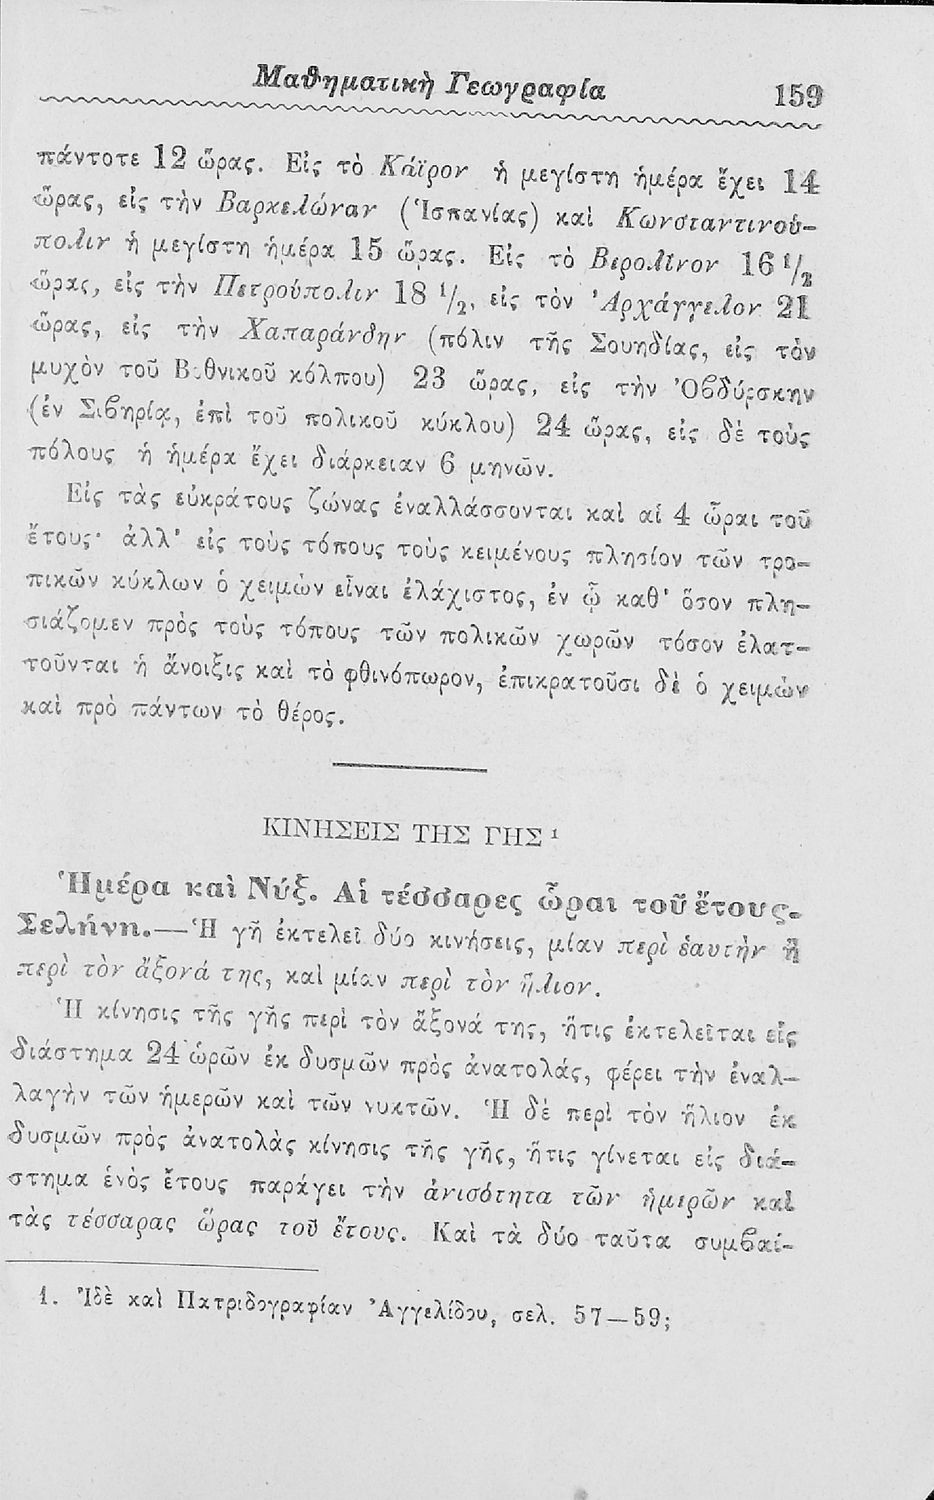 Μαθηματικὴ Γεωγραφία 159
πάντοτε 12 ὥρας. Εἰς τὸ Κάϊρον ἡ μεγίστη ἡμέρα ἔχει 14
ὥρας, εἰς τὴν Βαρκελώναν (Ἱσπανίας) καὶ Κωνσταντινού-
πολιν ἡ μεγίστη ἡμέρα 15 ὥρας. Εἰς τὸ Βερολῖνον 16 1/2
ὥρας, εἰς τὴν Πετρούπολιν 18 1/2, εἰς τὸν Ἀρχάγγελον 21
ὥρας, εἰς τὴν Χαπαράνδην (πόλιν τῆς Σουηδίας, εἰς τὸν
μυχὸν τοῦ Βοθνικοῦ κόλπου) 23 ὥρας, εἰς τὴν Ὀβδύρσκην
(ἐν Σιβηρίᾳ, ἐπὶ τοῦ πολικοῦ κύκλου) 24 ὥρας, εἰς δὲ τοὺς
πόλους ἡ ἡμέρα ἔχει διάρκειαν 6 μηνῶν.
Εἰς τὰς εὐκράτους ζώνας ἐναλλάσσονται καὶ αἱ 4 ὧραι τοῦ
ἔτους· ἀλλ' εἰς τοὺς τόπους τοὺς κειμένους πλησίον τῶν τρο-
πικῶν κύκλων ὁ χειμὼν εἶναι ἐλάχιστος, ἐν ᾧ καθ' ὅσον πλη-
σιάζομεν πρὸς τοὺς τόπους τῶν πολικῶν χωρῶν τόσον ἐλατ-
τοῦνται ἡ ἄνοιξις καὶ τὸ φθινόπωρον, ἐπικρατοῦσι δὲ ὁ χειμὼν
καὶ πρὸ πάντων τὸ θέρος.
ΚΙΝΗΣΕΙΣ ΤΗΣ ΓΗΣ 1
Ἡμέρα καὶ Νύξ. Αἱ τέσσαρες ὧραι τοῦ ἔτους.
Σελήνη.—Ἡ γῆ ἐκτελεῖ δύο κινήσεις, μίαν περὶ ἑαυτὴν ἢ
περὶ τὸν ἄξονά της, καὶ μίαν περὶ τὸν ἥλιον.
Ἡ κίνησις τῆς γῆς περὶ τὸν ἄξονά της, ἥτις ἐκτελεῖται εἰς
διάστημα 24 ὡρῶν ἐκ δυσμῶν πρὸς ἀνατολάς, φέρει τὴν ἐναλ-
λαγὴν τῶν ἡμερῶν καὶ τῶν νυκτῶν. Ἡ δὲ περὶ τὸν ἥλιον ἐκ
δυσμῶν πρὸς ἀνατολὰς κίνησις τῆς γῆς, ἥτις γίνεται εἰς διά-
στημα ἑνὸς ἔτους παράγει τὴν ἀνισότητα τῶν ἡμερῶν καὶ
τὰς τέσσαρας ὥρας τοῦ ἔτους. Καὶ τὰ δύο ταῦτα συμβαί-
1. Ἰδὲ καὶ Πατριδογραφίαν Ἀγγελίδου, σελ. 57—59;